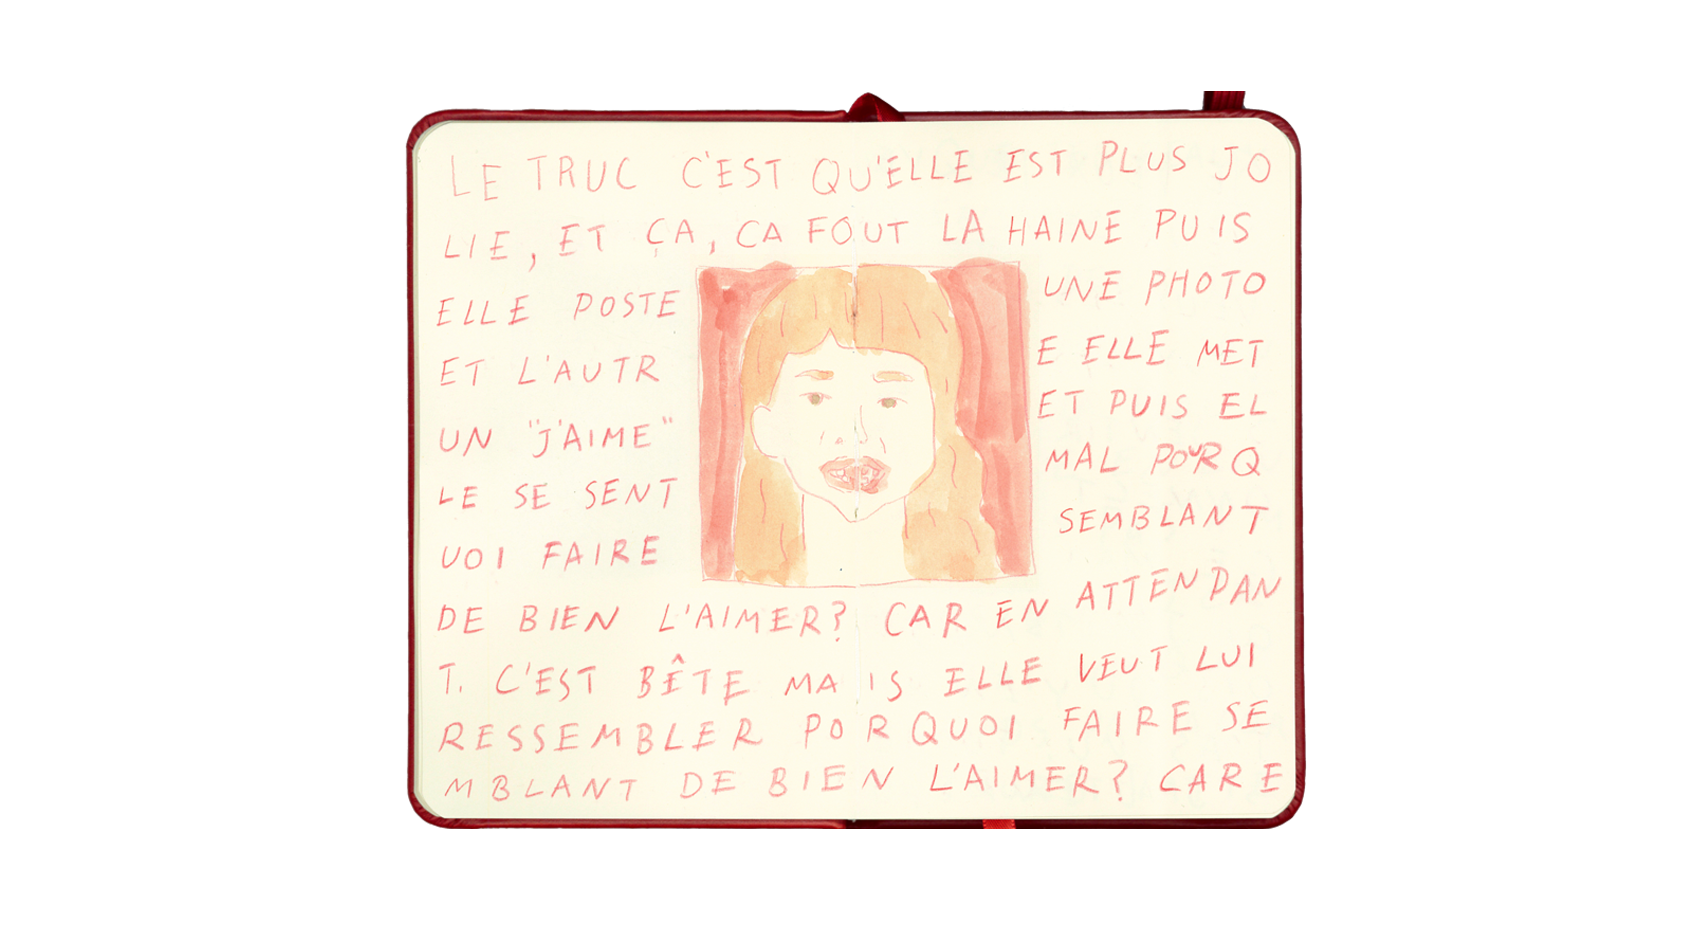 LE TRUC C'EST QU'ELLE EST PLUS JO
LIE, ET ÇA, CA FOUT LA HAINE PUIS
ELLE POSTE UNE PHOTO
ET L'AUTR E ELLE MET
UN "J'AIME" ET PUIS EL
LE SE SENT MAL POURQ
UOI FAIRE SEMBLANT
DE BIEN L'AIMER? CAR EN ATTENDAN
T. C'EST BÊTE MAIS ELLE VEUT LUI
RESSEMBLER PORQUOI FAIRE SE
MBLANT DE BIEN L'AIMER? CAR E